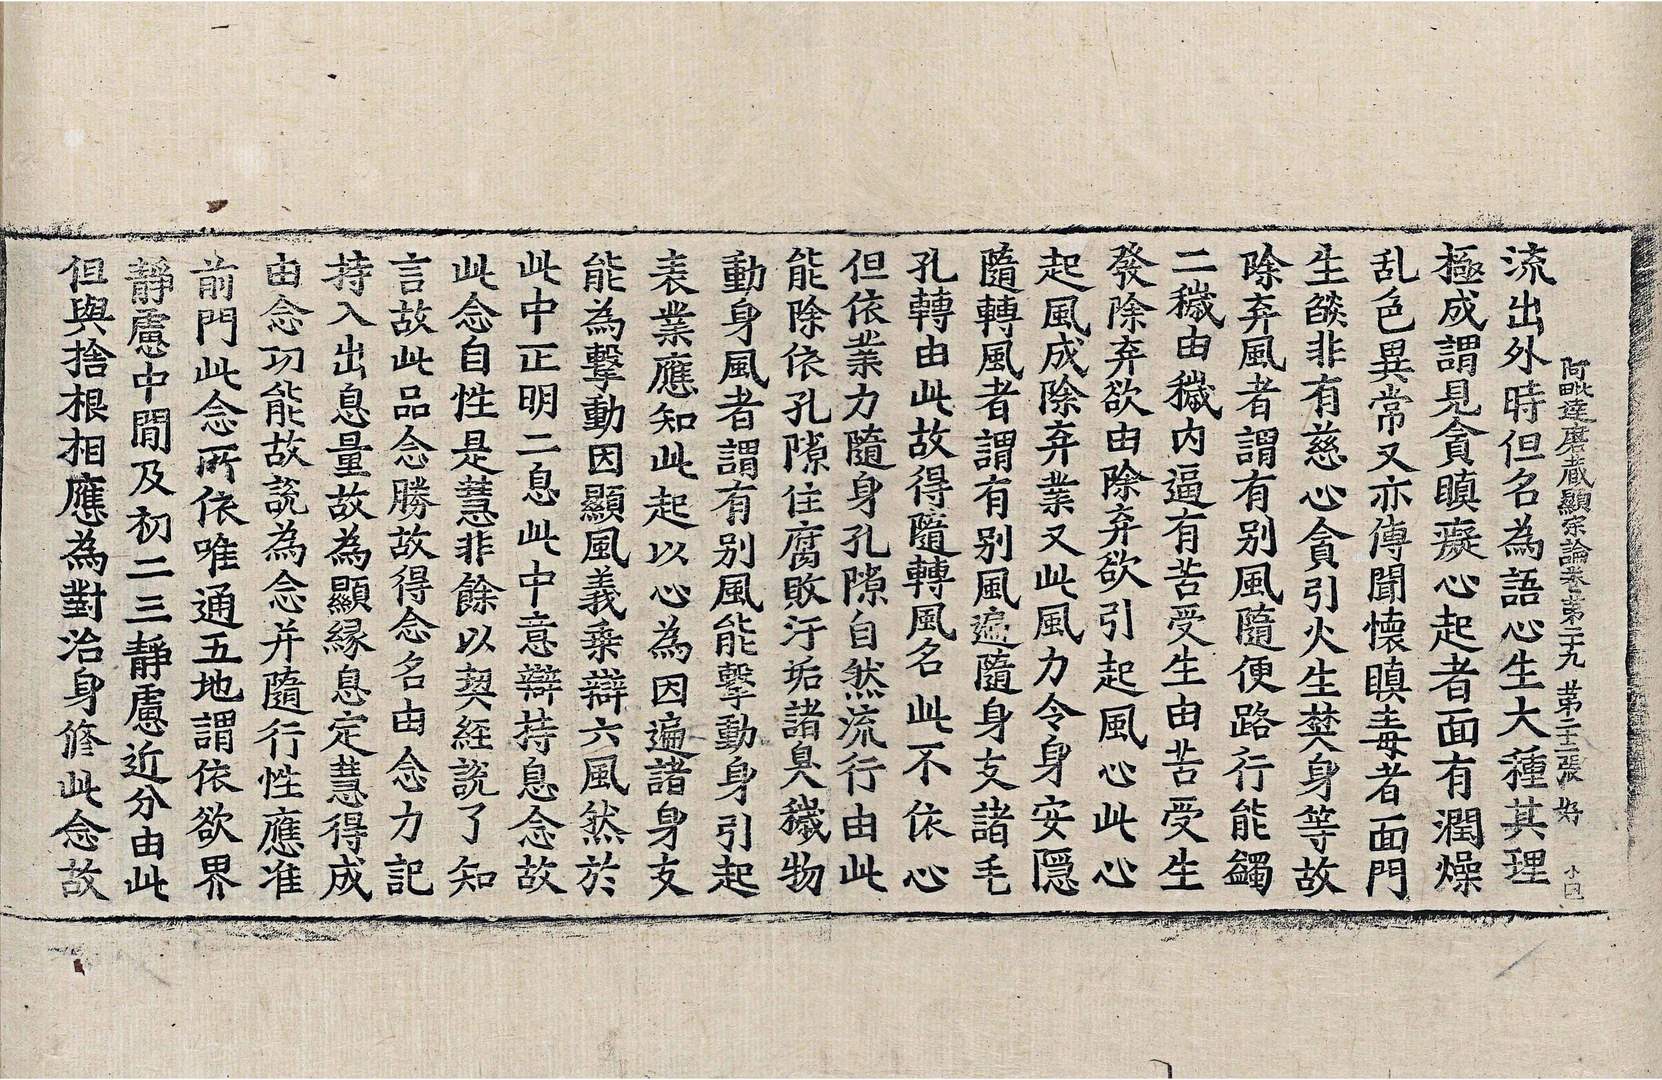 阿毗達磨藏顯宗論卷第二十九 第二十二張 好
流出外時但名為語心生大種其理
極成謂見貪瞋癡心起者面有潤燥
乱色異常又亦傳聞懷瞋毒者面門
生燄非有慈心貪引火生焚身等故
除弃風者謂有别風隨便路行能蠲
二穢由穢内逼有苦受生由苦受生
發除弃欲由除弃欲引起風心此心
起風成除弃業又此風力令身安隱
隨轉風者謂有别風遍隨身支諸毛
孔轉由此故得隨轉風名此不依心
但依業力隨身孔隙自然流行由此
能除依孔隙住腐敗汙垢諸臭穢物
動身風者謂有别風能擊動身引起
表業應知此起以心為因遍諸身支
能為擊動因顯風義乘辯六風然於
此中正明二息此中意辯持息念故
此念自性是慧非餘以契経說了知
言故此品念勝故得念名由念力記
持入出息量故為顯縁息定慧得成
由念功能故說為念并隨行性應准
前門此念所依唯通五地謂依欲界
靜慮中間及初二三靜慮近分由此
但與捨根相應為對治身修此念故